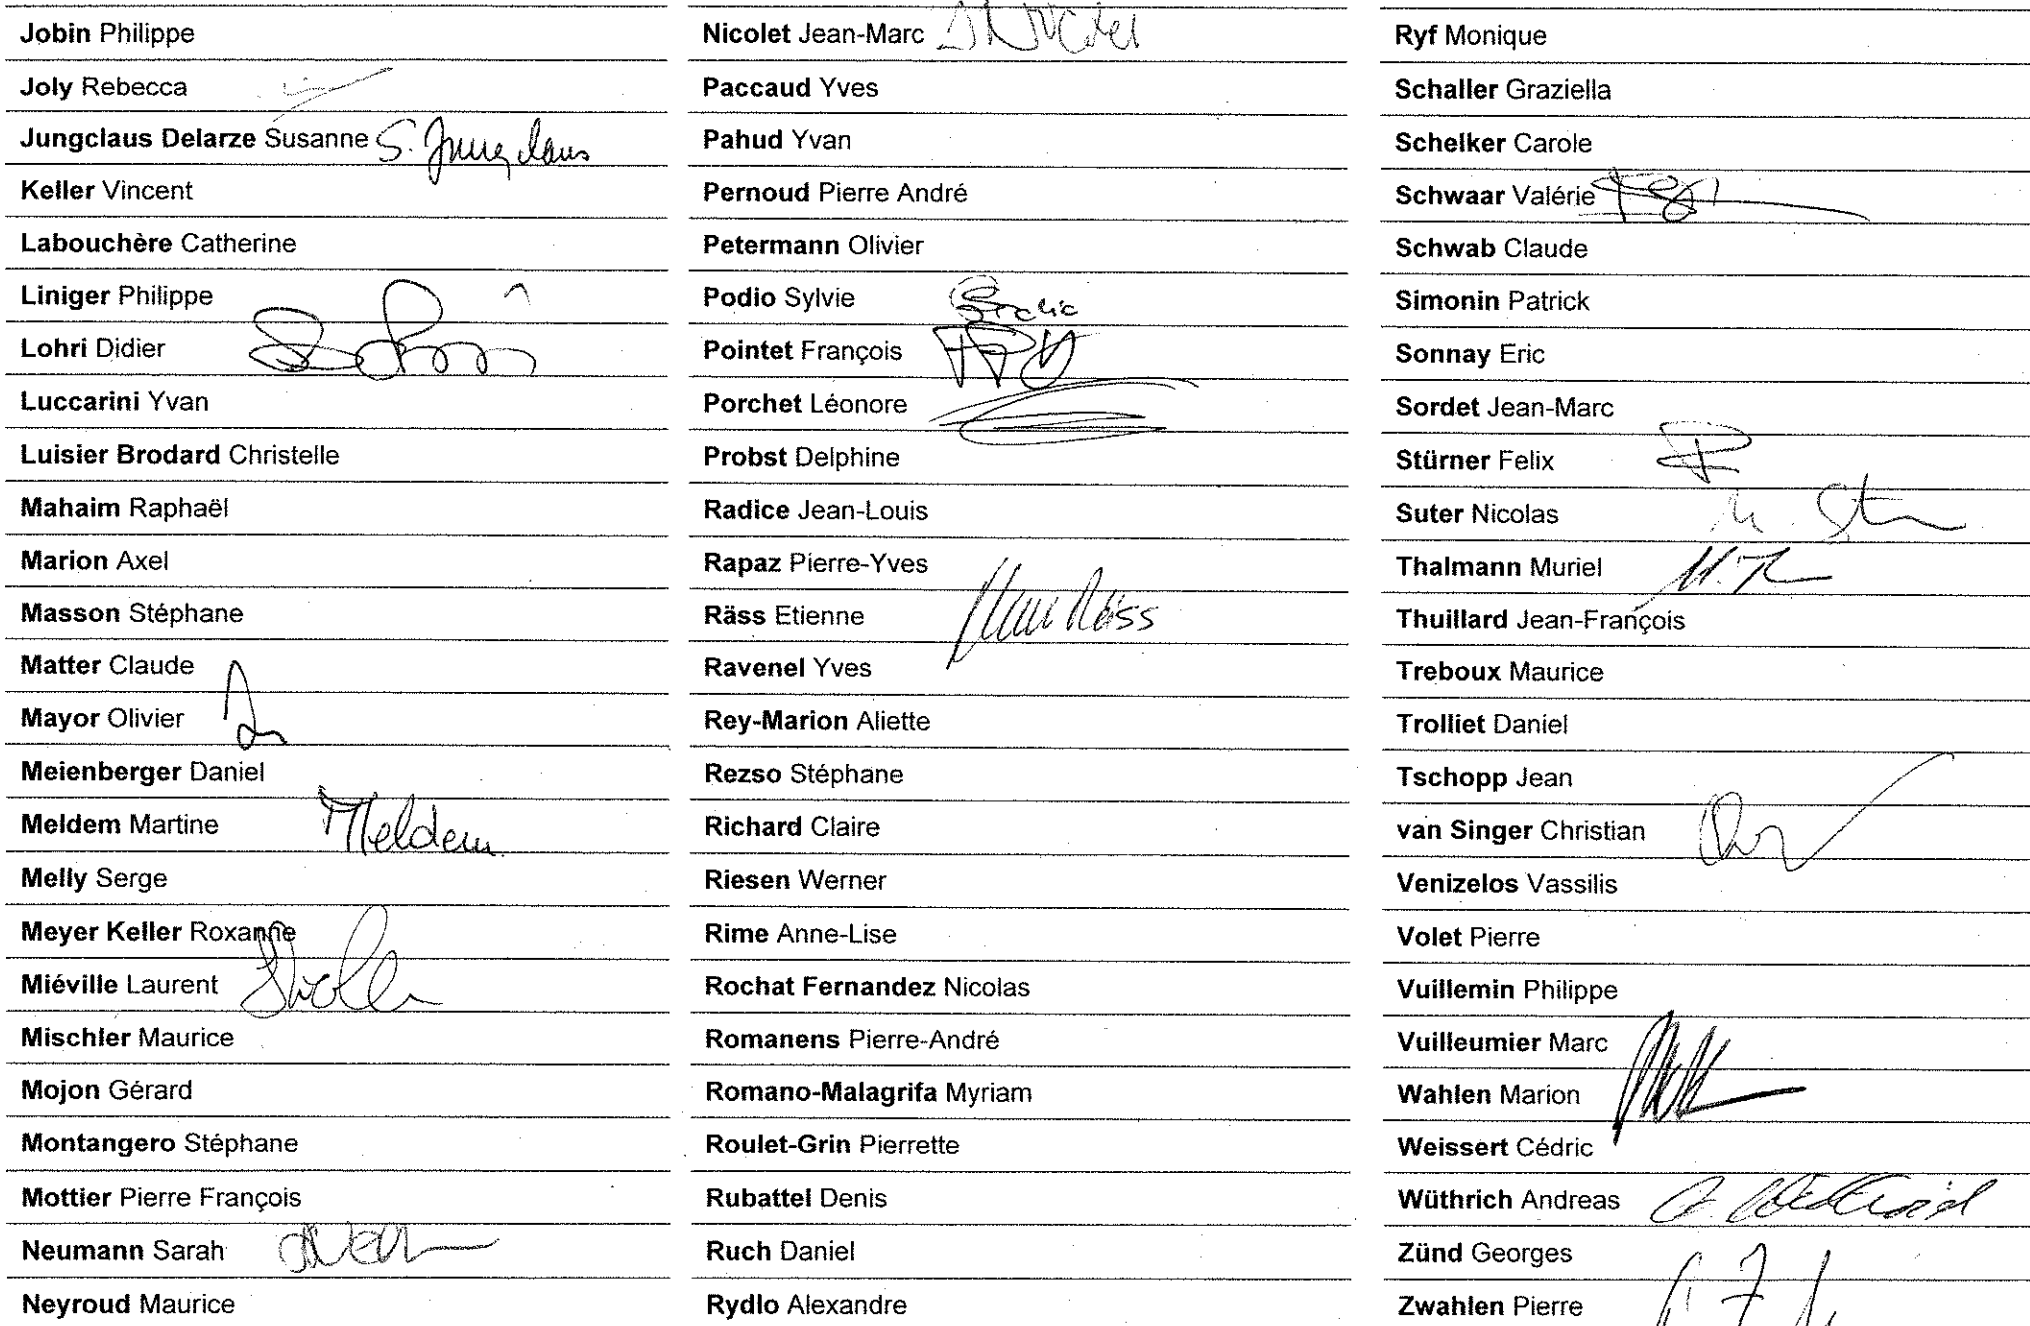 Jobin Philippe
Joly Rebecca
Jungclaus Delarze Susanne S. Jungclaus
Keller Vincent
Labouchère Catherine
Liniger Philippe
Lohri Didier
Luccarini Yvan
Luisier Brodard Christelle
Mahaim Raphaël
Marion Axel
Masson Stéphane
Matter Claude
Mayor Olivier
Meienberger Daniel
Meldem Martine Meldem
Melly Serge
Meyer Keller Roxanne
Miéville Laurent
Mischler Maurice
Mojon Gérard
Montangero Stéphane
Mottier Pierre François
Neumann Sarah
Neyroud Maurice
Nicolet Jean-Marc
Paccaud Yves
Pahud Yvan
Pernoud Pierre André
Petermann Olivier
Podio Sylvie
Pointet François
Porchet Léonore
Probst Delphine
Radice Jean-Louis
Rapaz Pierre-Yves
Räss Etienne Räss
Ravenel Yves
Rey-Marion Aliette
Rezso Stéphane
Richard Claire
Riesen Werner
Rime Anne-Lise
Rochat Fernandez Nicolas
Romanens Pierre-André
Romano-Malagrifa Myriam
Roulet-Grin Pierrette
Rubattel Denis
Ruch Daniel
Rydlo Alexandre
Ryf Monique
Schaller Graziella
Schelker Carole
Schwaar Valérie
Schwab Claude
Simonin Patrick
Sonnay Eric
Sordet Jean-Marc
Stürner Felix
Suter Nicolas
Thalmann Muriel
Thuillard Jean-François
Treboux Maurice
Trolliet Daniel
Tschopp Jean
van Singer Christian
Venizelos Vassilis
Volet Pierre
Vuillemin Philippe
Vuilleumier Marc
Wahlen Marion
Weissert Cédric
Wüthrich Andreas
Zünd Georges
Zwahlen Pierre